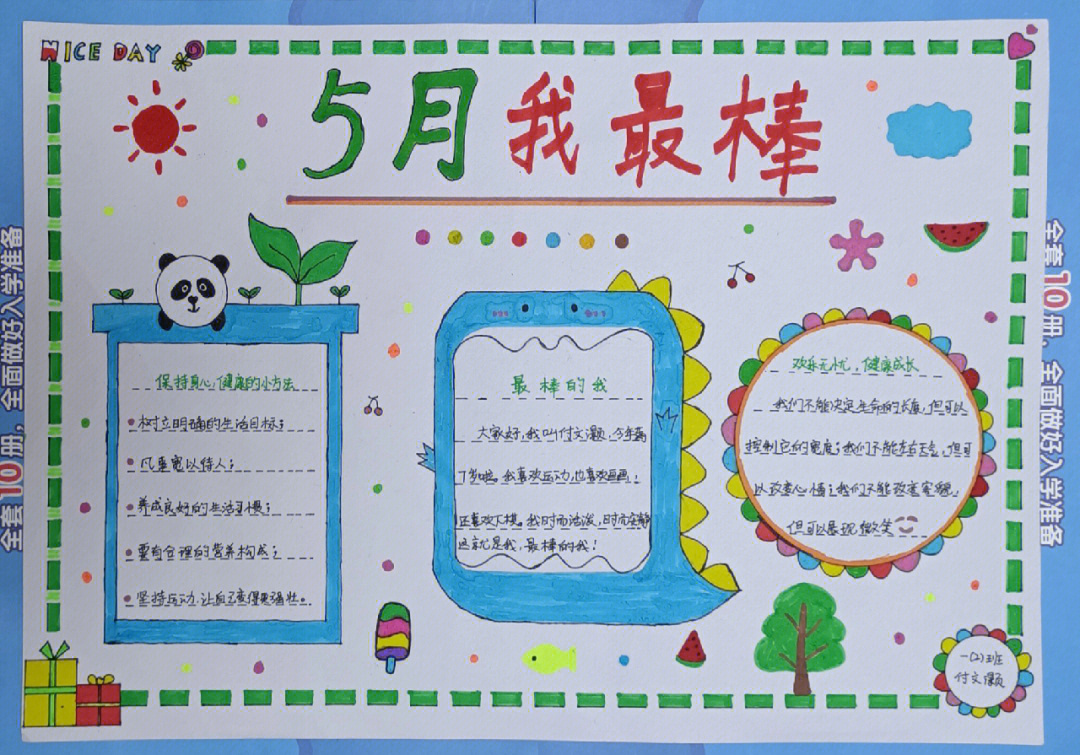 NICE DAY
5月我最棒
保持身心健康的小方法
树立明确的生活目标;
凡事宽以待人;
养成良好的生活习惯;
要有合理的营养构成;
坚持运动,让自己变得更强壮。
最棒的我
大家好,我叫付文灏,今年满
了岁啦。我喜欢运动,也喜欢画画;
还喜欢下棋。我时而活泼,时而安静
这就是我,最棒的我!
欢乐无忧,健康成长
我们不能决定生命的长度,但可以
控制它的宽度;我们不能左右天气,但可
以改变心情;我们不能改变容貌,
但可以展现微笑
一(2)班
付文灏
全套10册,全面做好入学准备
全套10册,全面做好入学准备